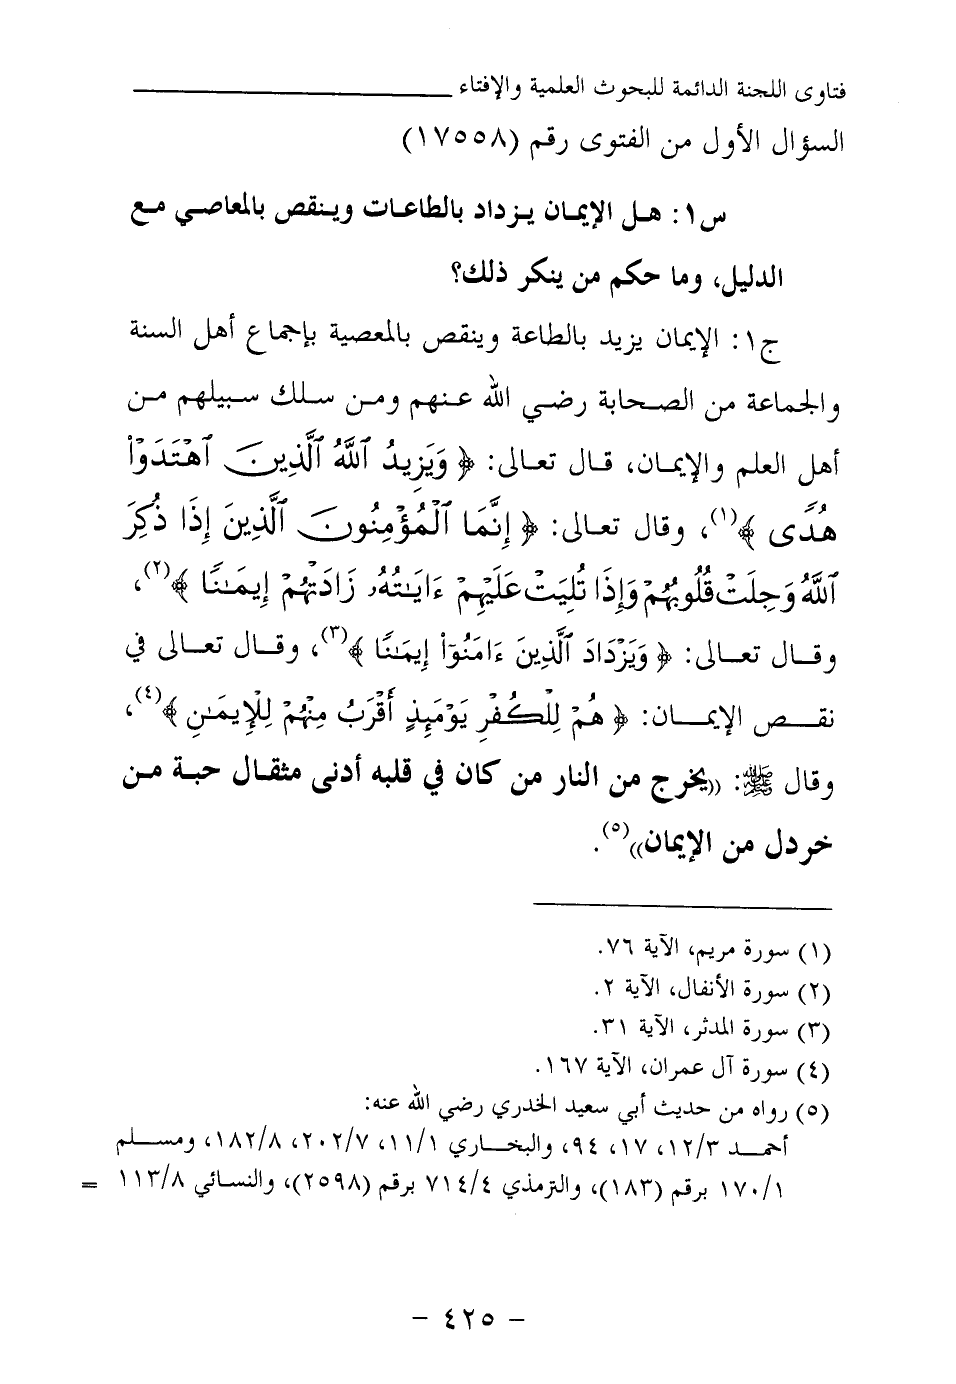 فتاوى اللجنة الدائمة للبحوث العلمية والإفتاء
السؤال الأول من الفتوى رقم (١٧٥٥٨)
س١: هل الإيمان يزداد بالطاعات وينقص بالمعاصي مع
الدليل، وما حكم من ينكر ذلك؟
ج١: الإيمان يزيد بالطاعة وينقص بالمعصية بإجماع أهل السنة
والجماعة من الصحابة رضي الله عنهم ومن سلك سبيلهم من
أهل العلم والإيمان، قال تعالى: ﴿ وَيَزِيدُ ٱللَّهُ ٱلَّذِينَ ٱهْتَدَوْا۟
هُدًى ﴾(١)، وقال تعالى: ﴿ إِنَّمَا ٱلْمُؤْمِنُونَ ٱلَّذِينَ إِذَا ذُكِرَ
ٱللَّهُ وَجِلَتْ قُلُوبُهُمْ وَإِذَا تُلِيَتْ عَلَيْهِمْ ءَايَـٰتُهُۥ زَادَتْهُمْ إِيمَـٰنًا ﴾(٢)،
وقال تعالى: ﴿ وَيَزْدَادَ ٱلَّذِينَ ءَامَنُوٓا۟ إِيمَـٰنًا ﴾(٣)، وقال تعالى في
نقص الإيمان: ﴿ هُمْ لِلْكُفْرِ يَوْمَئِذٍ أَقْرَبُ مِنْهُمْ لِلْإِيمَـٰنِ ﴾(٤)،
وقال ﷺ: ((يخرج من النار من كان في قلبه أدنى مثقال حبة من
خردل من الإيمان))(٥).
(١) سورة مريم، الآية ٧٦.
(٢) سورة الأنفال، الآية ٢.
(٣) سورة المدثر، الآية ٣١.
(٤) سورة آل عمران، الآية ١٦٧.
(٥) رواه من حديث أبي سعيد الخدري رضي الله عنه:
أحمد ١٢/٣، ١٧، ٩٤، والبخاري ١١/١، ٢٠٢/٧، ١٨٢/٨، ومسلم
١٧٠/١ برقم (١٨٣)، والترمذي ٧١٤/٤ برقم (٢٥٩٨)، والنسائي ١١٣/٨ =
- ٤٢٥ -